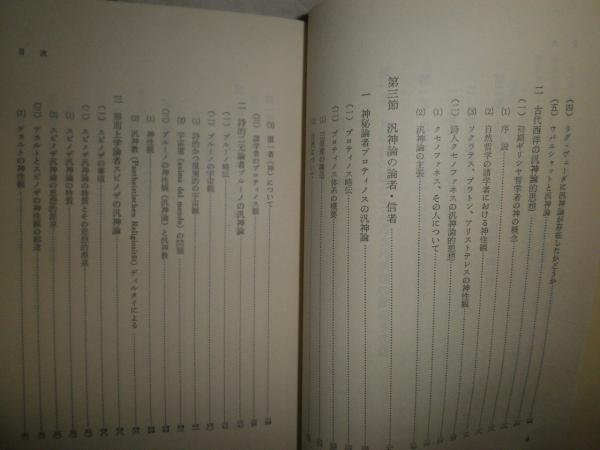 (四) リグ・ヴェーダに汎神論が存在したかどうか
(五) ウパニシャットと汎神論
二 古代西洋の汎神論的思想
(一) 初期ギリシャ哲学者の神の概念
(1) 序説
(2) 自然哲学の諸学者における神性観
(3) ソクラテス、プラトン、アリストテレスの神性観
(二) 詩人クセノファネスの汎神論的思想
(1) クセノファネス、その人について
(2) 汎神論の主張
第三節 汎神論の論者・信者
一 神秘論者プロティノスの汎神論
(一) プロティノス略伝
(二) プロティノス体系の概要
(1)
(2)
(3) 唯一者(神)について
(三) 諸学者のプロティノス観
二 詩的二元論者ブルーノの汎神論
(一) ブルーノ略伝
(二) ブルーノの宇宙観
(1) 詩的かつ現実的の宇宙観
(2) 宇宙魂 (anima del mondo) の問題
(三) ブルーノの神性観(汎神論)と汎神教
(1) 神性観
(2) 汎神教 (Pantheistischen Religiosität) ディルタイによる
三 形而上学論者スピノザの汎神論
(一) スピノザの事項
(二) スピノザ汎神論の特質とその思想的源泉
(1) スピノザ汎神論の特質
(2) スピノザ汎神論の思想的源泉
(三) デカルトとスピノザの神性観の相違
(1) デカルトの神性観
目次